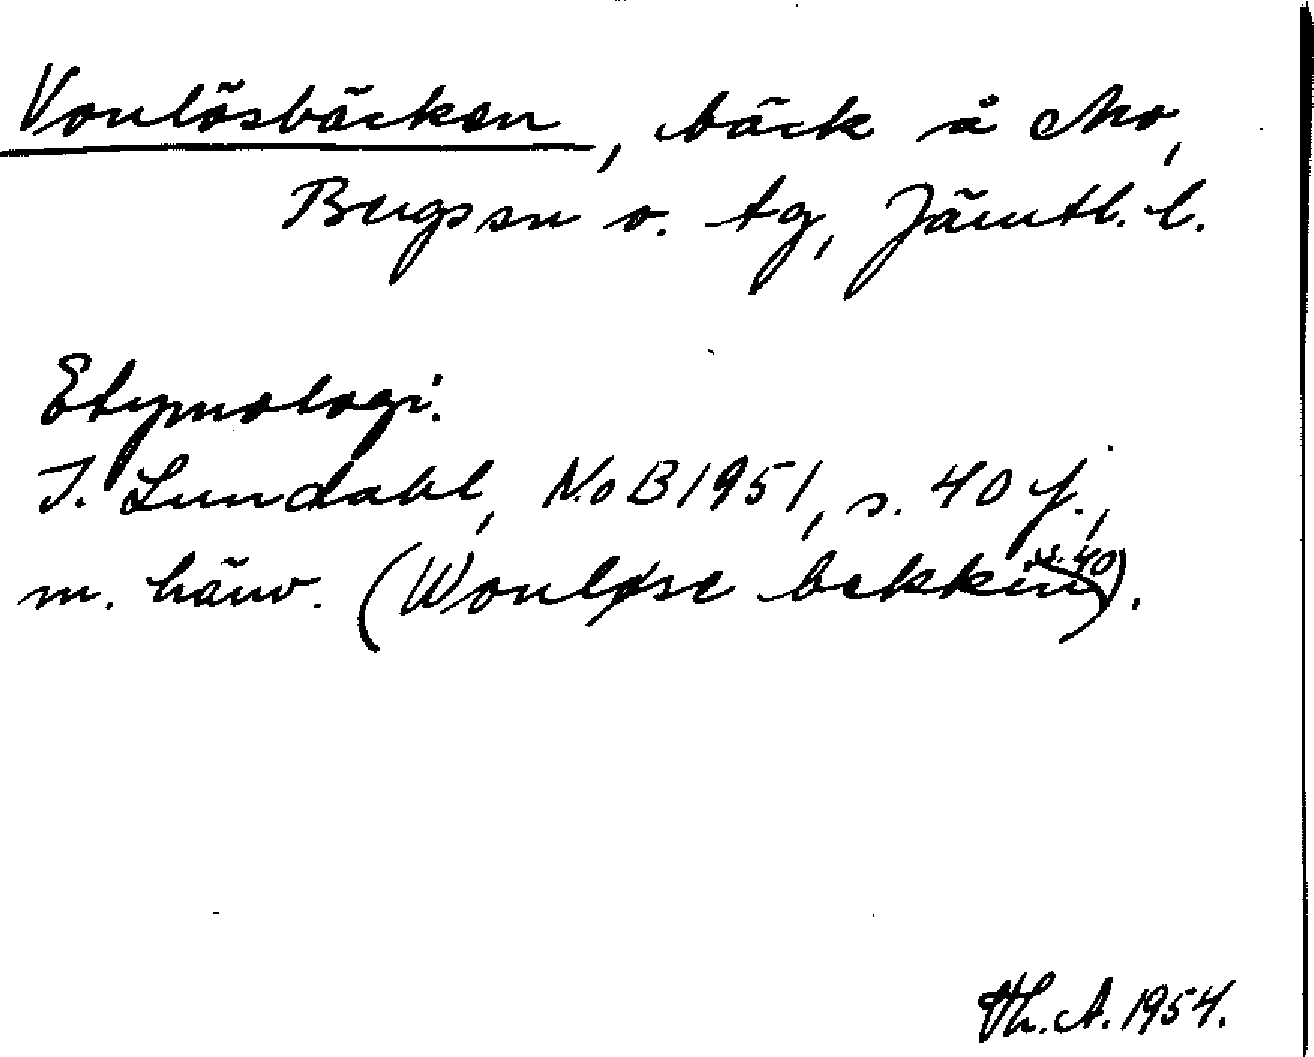 Vonlösbäcken, bäck å Mo,
Bergs sn o. tg, Jämtl. l.
Etymologi.
I. Lundahl, NoB 1951, s. 40 f.,
m. hänv. (Wonløse bekkin s. 40).
Th. A. 1954.